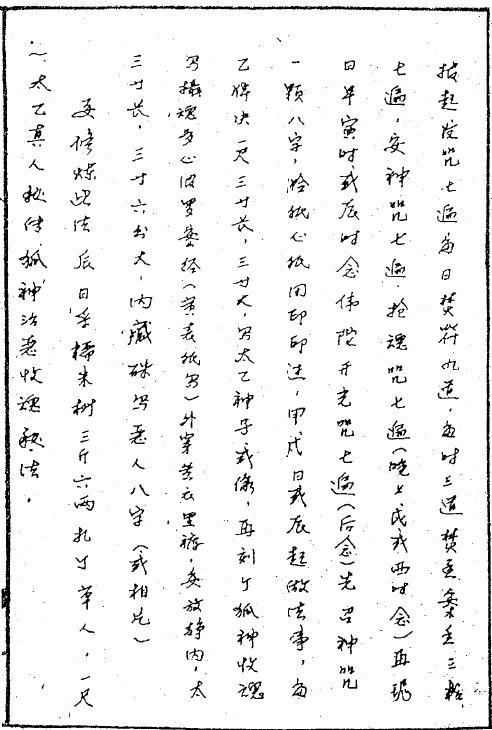 ~太乙真人秘传狐神治恶收魂秘法。
要修炼此法辰日采糯米树三斤六两扎个草人，一尺
三寸长，三寸六分大，内藏硃写恶人八字（或相片）
写摄魂多心波罗蜜经（黄表纸写）外穿黄衣黑裤，安放静内，太
乙牌决一尺三寸长，三寸大，写太乙神子或像，再刻个狐神收魂
一颗八字，纸心纸用印印进，甲戌日或辰起做法事，每
日早寅时或辰时念伟陀开光咒七遍（后念）先召神咒
七遍，安神咒七遍，抢魂咒七遍（晚上戌或酉时念）再
起法咒七遍每日焚符九道，每时三道焚至案三